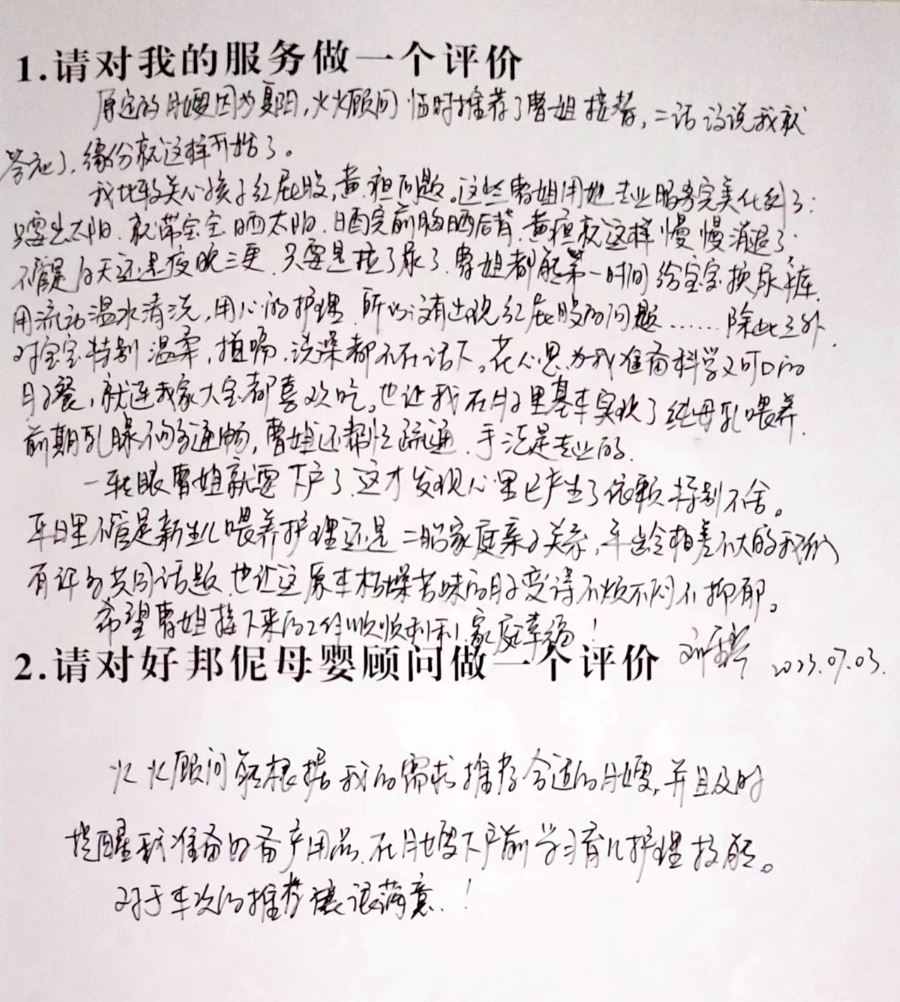 1.请对我的服务做一个评价
原定的月嫂因为夏阳,火火顾问临时推荐了曹姐接替,二话没说我就
答应了,缘份就这样开始了。
我比较关心孩子红屁股,黄疸问题。这些曹姐用她专业服务完美化解了:
只要出太阳,就带宝宝晒太阳,晒完前胸晒后背,黄疸就这样慢慢消退了;
不管是白天还是夜晚三更,只要是拉了尿了,曹姐都能第一时间给宝宝换尿裤,
用流动温水清洗,用心的护理,所以没有出现红屁股的问题……除此之外,
对宝宝特别温柔,拍嗝,洗澡都不在话下。花心思为我准备科学又可口的
月子餐,就连我家大宝都喜欢吃。也让我在月子里基本实现了纯母乳喂养,
前期乳腺不的通畅,曹姐还帮忙疏通,手法是专业的。
一转眼曹姐就要下户了,这才发现心里已产生了依赖,特别不舍。
平日里不管是新生儿喂养护理还是二胎家庭亲子关系,年龄相差不大的我们
有许多共同话题,也让这原本枯燥苦味的月子变得不烦不闷不抑郁。
希望曹姐接下来的工作顺顺利利!家庭幸福!
2.请对好邦伲母婴顾问做一个评价 2023.07.03.
火火顾问能根据我的需求推荐合适的月嫂,并且及时
提醒我准备的备产用品,在月嫂下户前学习育儿护理技能。
对于本次的推荐表很满意!